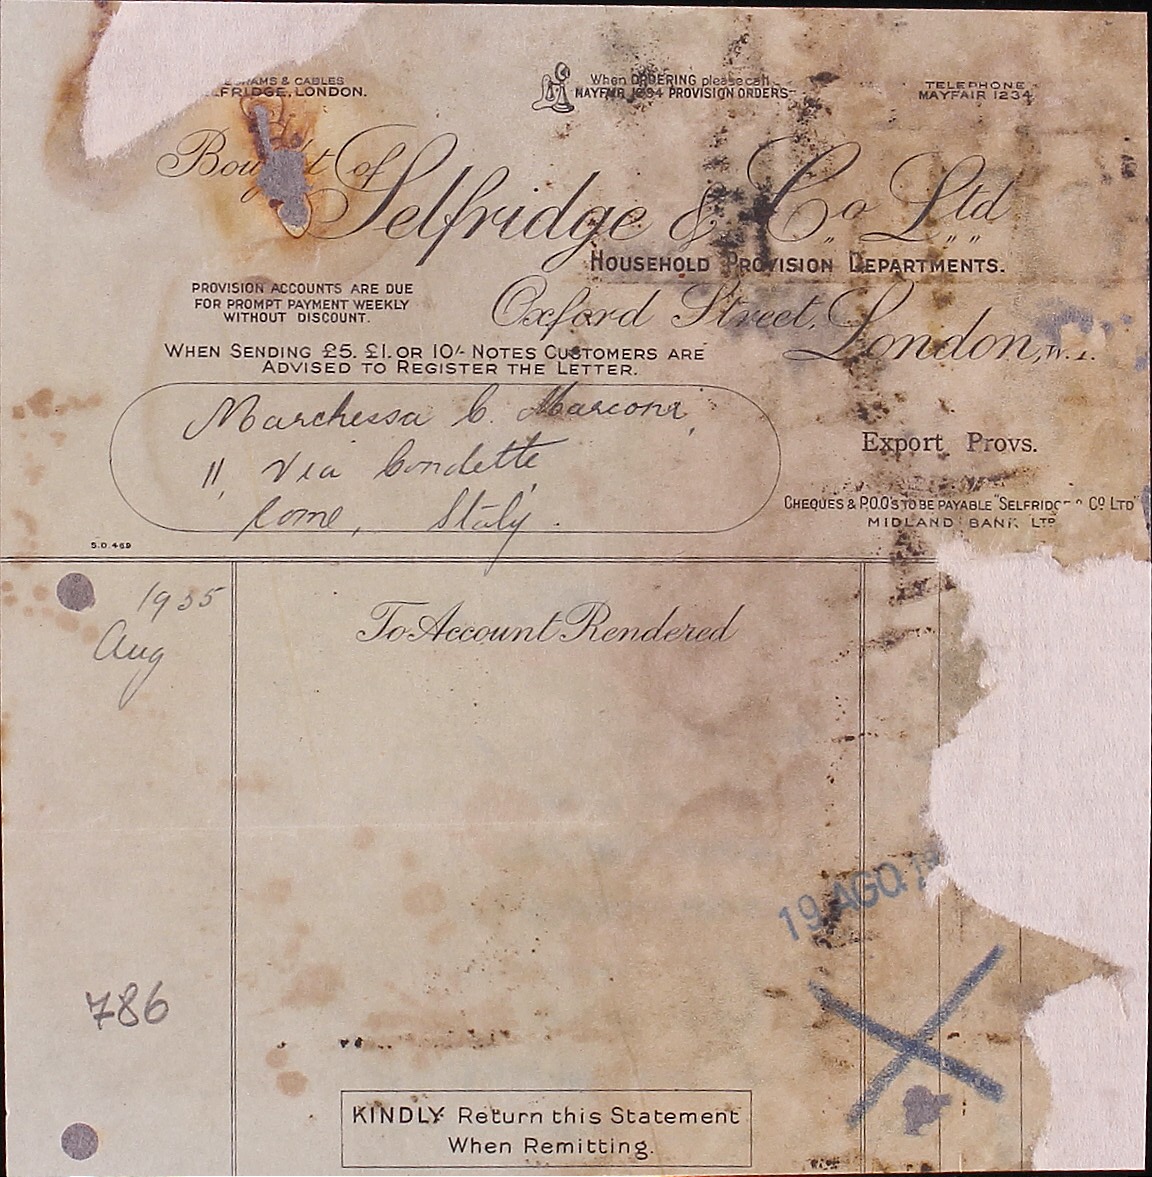 & CABLES
LFRIDGE, LONDON.
When ORDERING please call
MAYFAIR 1234 PROVISION ORDERS
TELEPHONE
MAYFAIR 1234
Bought of Selfridge & Co Ltd
HOUSEHOLD PROVISION DEPARTMENTS.
PROVISION ACCOUNTS ARE DUE
FOR PROMPT PAYMENT WEEKLY
WITHOUT DISCOUNT.
Oxford Street, London, W.1.
WHEN SENDING £5. £1. OR 10/- NOTES CUSTOMERS ARE
ADVISED TO REGISTER THE LETTER.
Marchessa C. Marconi,
11, Via Condotte
Rome, Italy.
Export Provs.
CHEQUES & P.O.O's TO BE PAYABLE "SELFRIDGE & Co LTD"
MIDLAND BANK LTD
S.D. 469
1935
Aug
To Account Rendered
19 AGO 1
786
KINDLY Return this Statement
When Remitting.